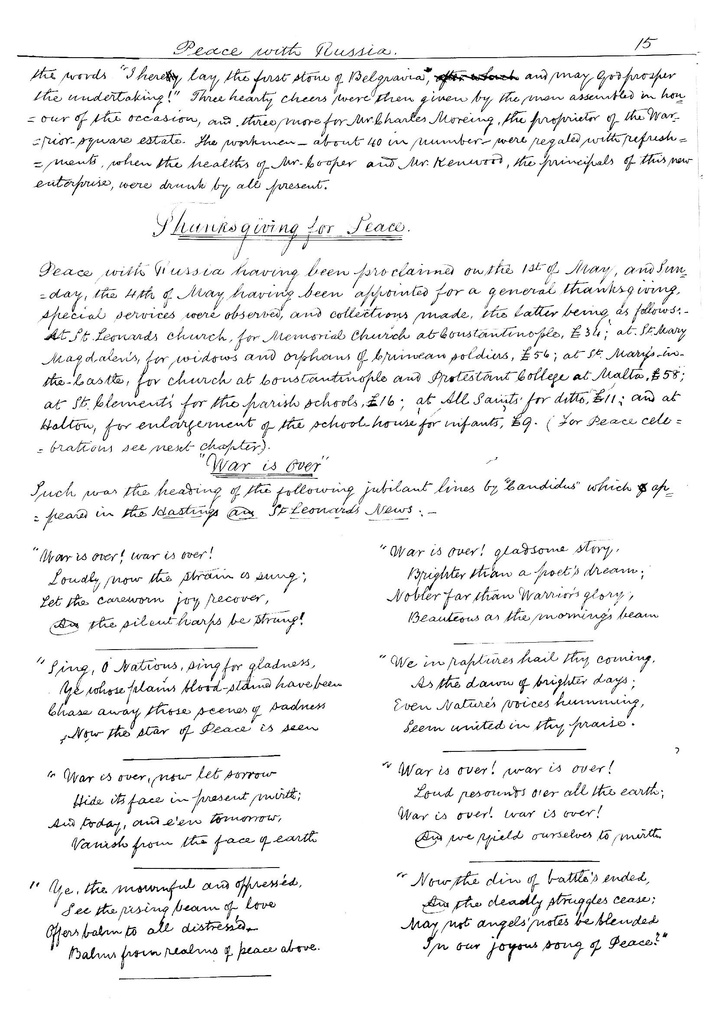 Peace with Russia. 15
the words "I hereby lay the first stone of Belgravia", after which and may God prosper
the undertaking!" Three hearty cheers were then given by the men assembled in hon-
=our of the occasion, and three more for Mr Charles Moreing, the proprietor of the War-
=rior square estate. The workmen - about 40 in number - were regaled with refresh-
=ments, when the healths of Mr. Cooper and Mr. Kenwood, the principals of this new
enterprise, were drunk by all present.
Thanksgiving for Peace.
Peace with Russia having been proclaimed on the 1st of May, and Sun-
=day, the 4th of May having been appointed for a general thanksgiving,
special services were observed, and collections made, the latter being as follows:-
At St. Leonards church, for Memorial Church at Constantinople, £34; at St. Mary
Magdalen's, for widows and orphans of Crimean soldiers, £56; at St. Mary's-in-
the-Castle, for church at Constantinople and Protestant College at Malta, £58;
at St. Clement's for the parish schools, £16; at All Saints' for ditto, £11; and at
Halton, for enlargement of the school-house for infants, £9. (For Peace cele-
=brations see next chapter).
"War is over"
Such was the heading of the following jubilant lines by "Candidus" which ap-
=peared in the Hastings and St Leonards News:-
"War is over! war is over!
Loudly now the strain is sung;
Let the careworn joy recover,
And the silent harps be strung!
"Sing, O Nations, sing for gladness,
Ye whose plains blood-stained have been
Chase away those scenes of sadness
Now the star of Peace is seen
"War is over, now let sorrow
Hide its face in present mirth;
And today, and e'en tomorrow,
Vanish from the face of earth
"Ye, the mournful and oppressed,
See the rising beam of love
Offers balm to all distressed
Balms from realms of peace above.
"War is over! gladsome story,
Brighter than a poet's dream;
Nobler far than Warrior's glory,
Beauteous as the morning's beam
"We in raptures hail thy coming,
As the dawn of brighter days;
Even Nature's voices humming,
Seem united in thy praise.
"War is over! war is over!
Loud resounds o'er all the earth;
War is over! war is over!
And we yield ourselves to mirth
"Now the din of battle's ended,
And the deadly struggles cease;
May not angels' notes be blended
In our joyous song of Peace?"